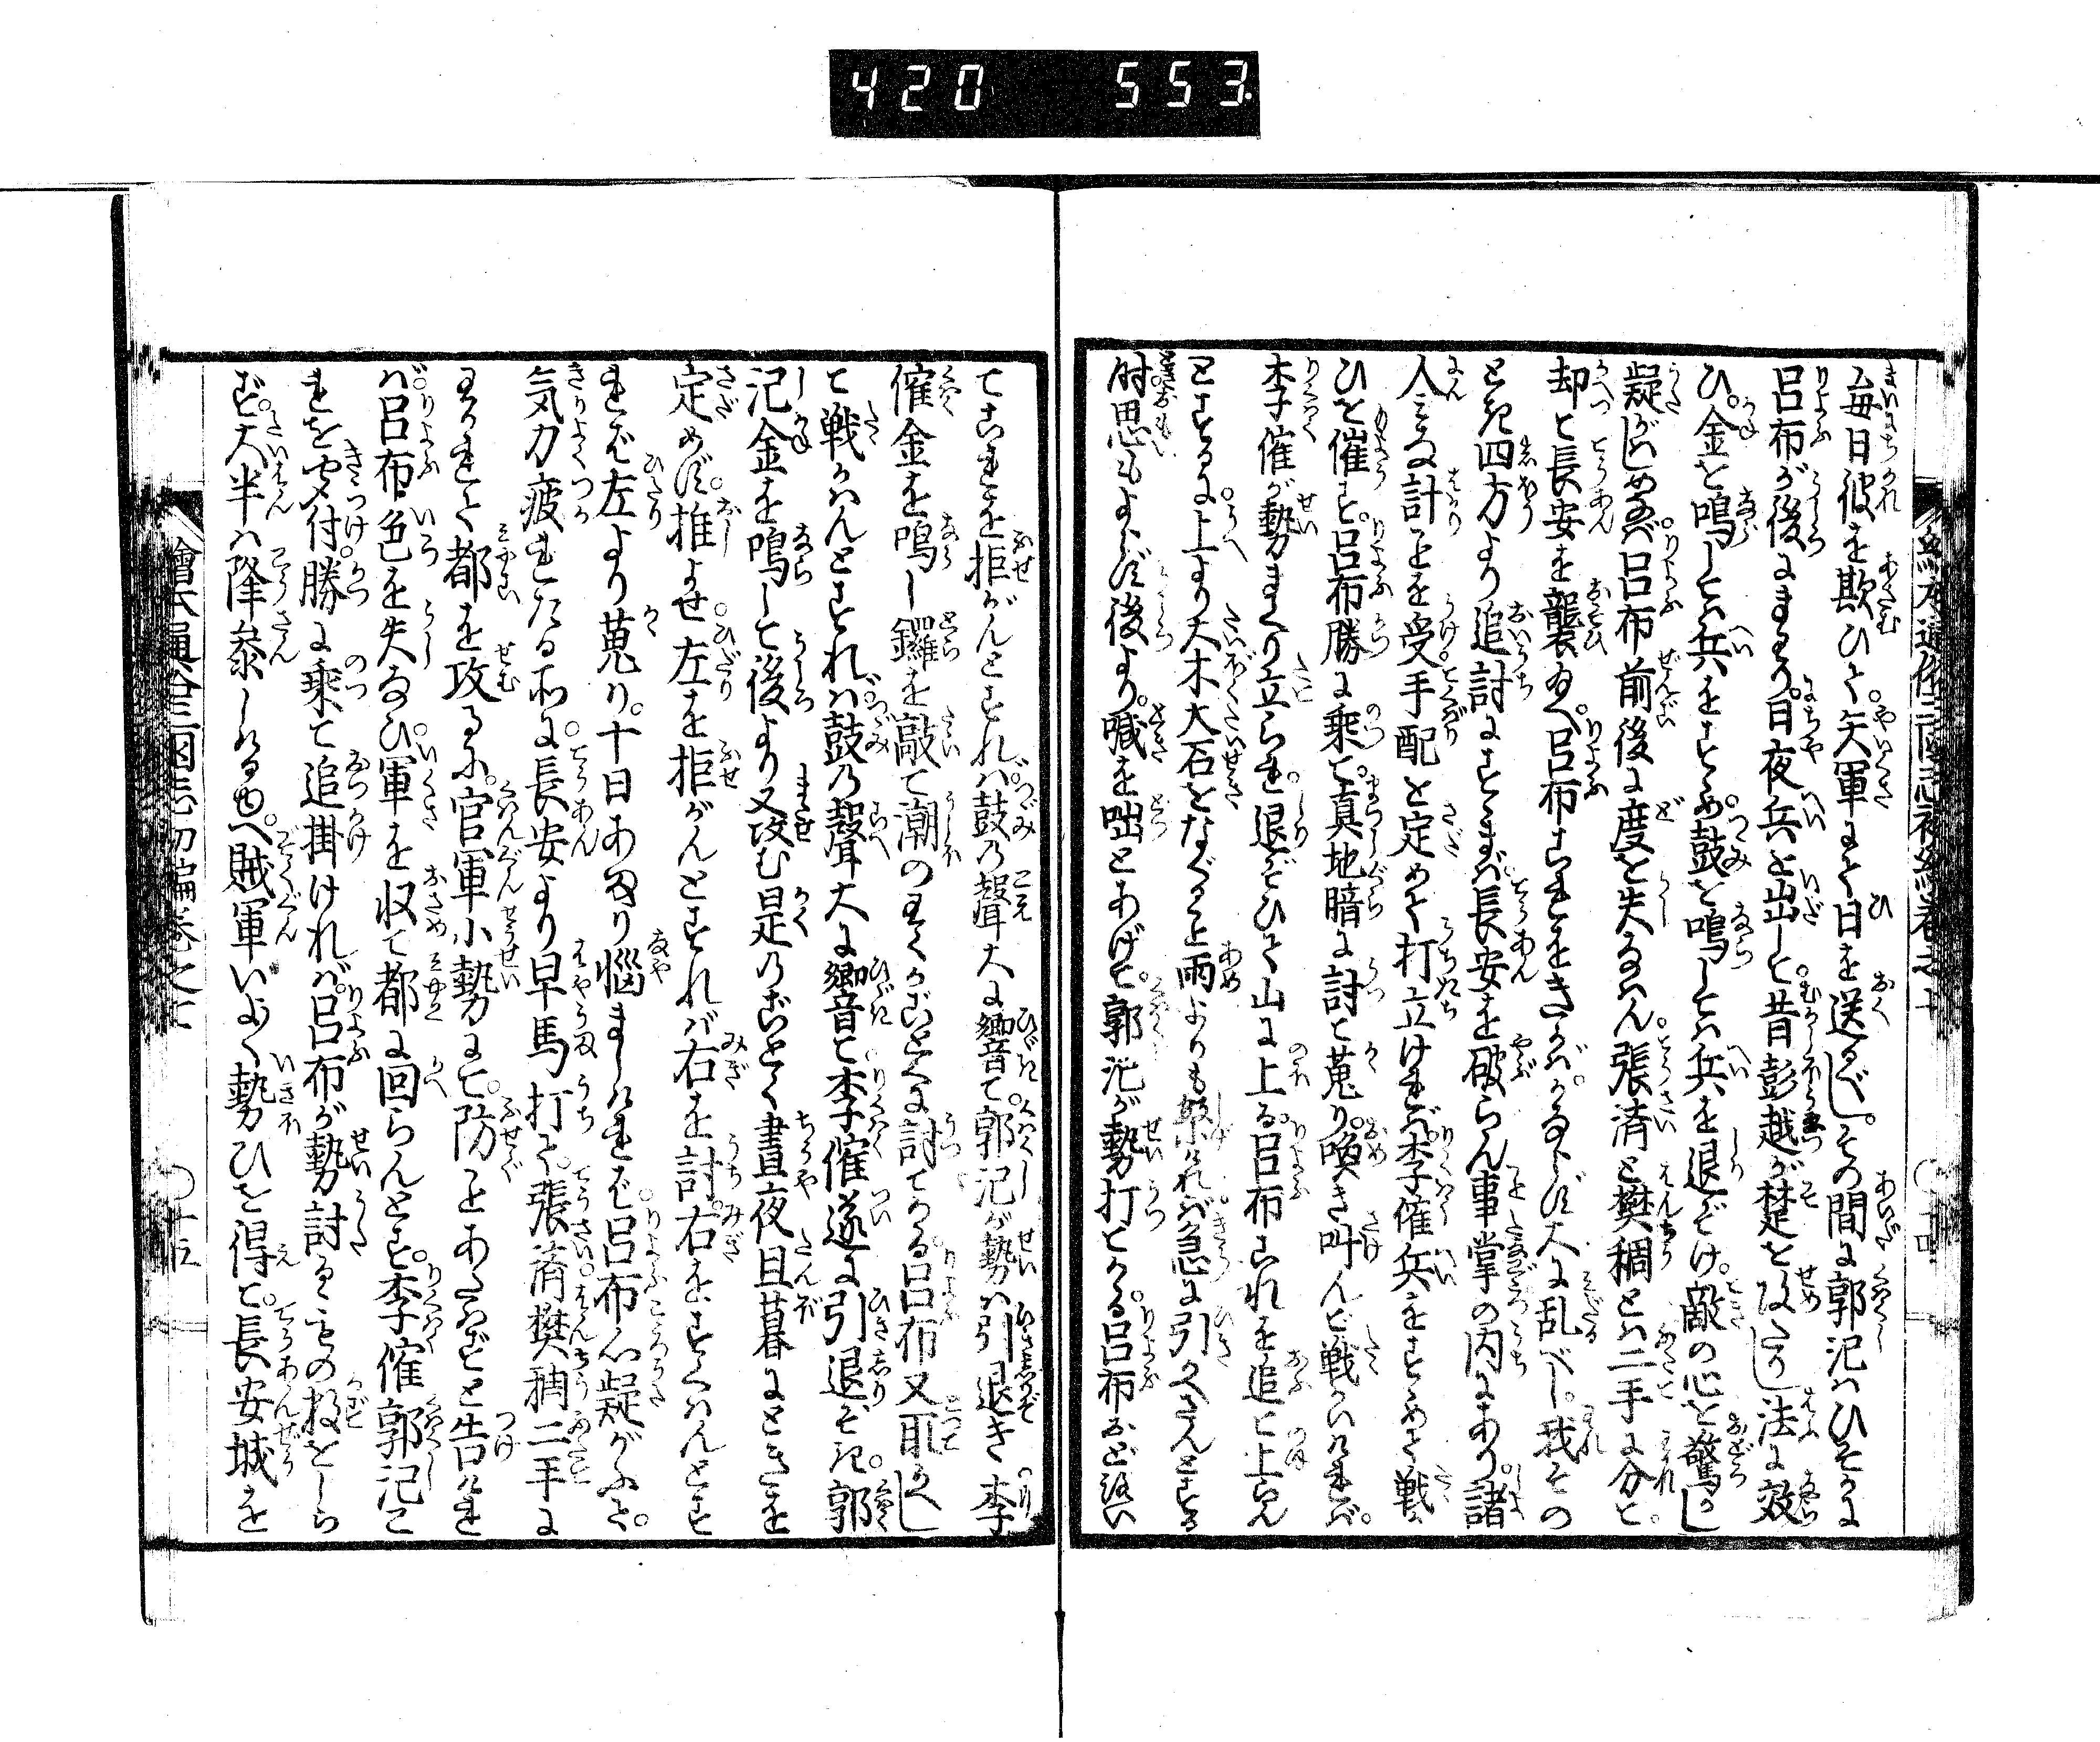 420 553
毎日彼を欺ひて。矢軍にて日を送るべし。その間に郭汜はひそかに
呂布が後にまはり。日夜兵を出して。昔彭越が楚を攻たりし法に效
ひ。金を鳴しては兵をすゝめ。鼓を鳴しては兵を退ぞけ。敵の心を驚かし
疑がはしめなば。呂布前後に度を失なはん。張済と樊稠とは二手に分て。
却て長安を襲ゆへ。呂布これをきかば。かならず大に乱べし。我その
とき四方より追討にすゝまば。長安を破らん事掌の内にあり。諸
人みな計ごとを受。手配を定めて打立ければ。李傕兵をすゝめて戦
ひを催す。呂布勝に乗て。真地暗に討て蒐り。喚き叫んで戦かいければ。
李傕が勢まくり立られ。退ぞひて山に上る。呂布これを追て上らん
とするに。上より大木大石をなぐる上雨よりも繁ければ。急に引かへさんとする
時。思もよらず後より。喊を咄とあげて。郭汜が勢打てかゝる。呂布おどろい
てこれを拒がんとすれば。鼓の聲大に響て。郭汜が勢は引退き李
傕金を鳴し鑼を敲て潮のわくがごとくに討てかゝる。呂布又取てかへし
て戦かはんとすれば。鼓の聲大に響て。李傕遂に引退ぞき。郭
汜金を鳴して後より又攻む是のごとく晝夜旦暮にときを
定めず。推よせ。左を拒がんとすれば右を討。右をすくはんとす
れば左より蒐り。十日あまり惱ましければ。呂布心疑がふて。
気力疲れたる所に。長安より早馬打て。張済樊稠二手に
わかれて都を攻るに。官軍小勢にて。防ことあたはずと告ければ
呂布色を失なひ。軍を収て都に回らんとす。李傕郭汜こ
れを聞付。勝に乗て追掛ければ。呂布が勢討るゝもの数をしら
ず。大半は降参しけるゆへ。賊軍いよく勢ひを得て。長安城を
繪本通俗三國志初編巻之十